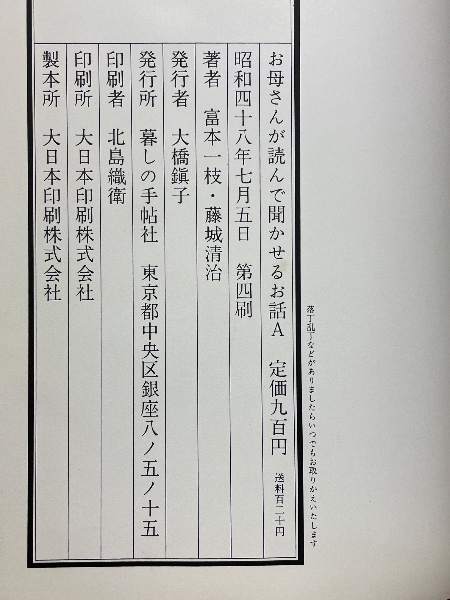 落丁乱丁などがありましたらいつでもお取りかえいたします
お母さんが読んで聞かせるお話A 定価九百円 送料百二十円
昭和四十八年七月五日 第四刷
著者 富本一枝・藤城清治
発行者 大橋鎭子
発行所 暮しの手帖社 東京都中央区銀座八ノ五ノ十五
印刷者 北島織衛
印刷所 大日本印刷株式会社
製本所 大日本印刷株式会社